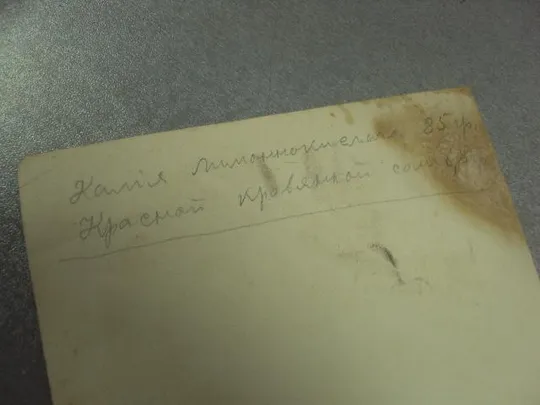 Калія лимоннокислаго 25 гр.
Красной кровянной соли